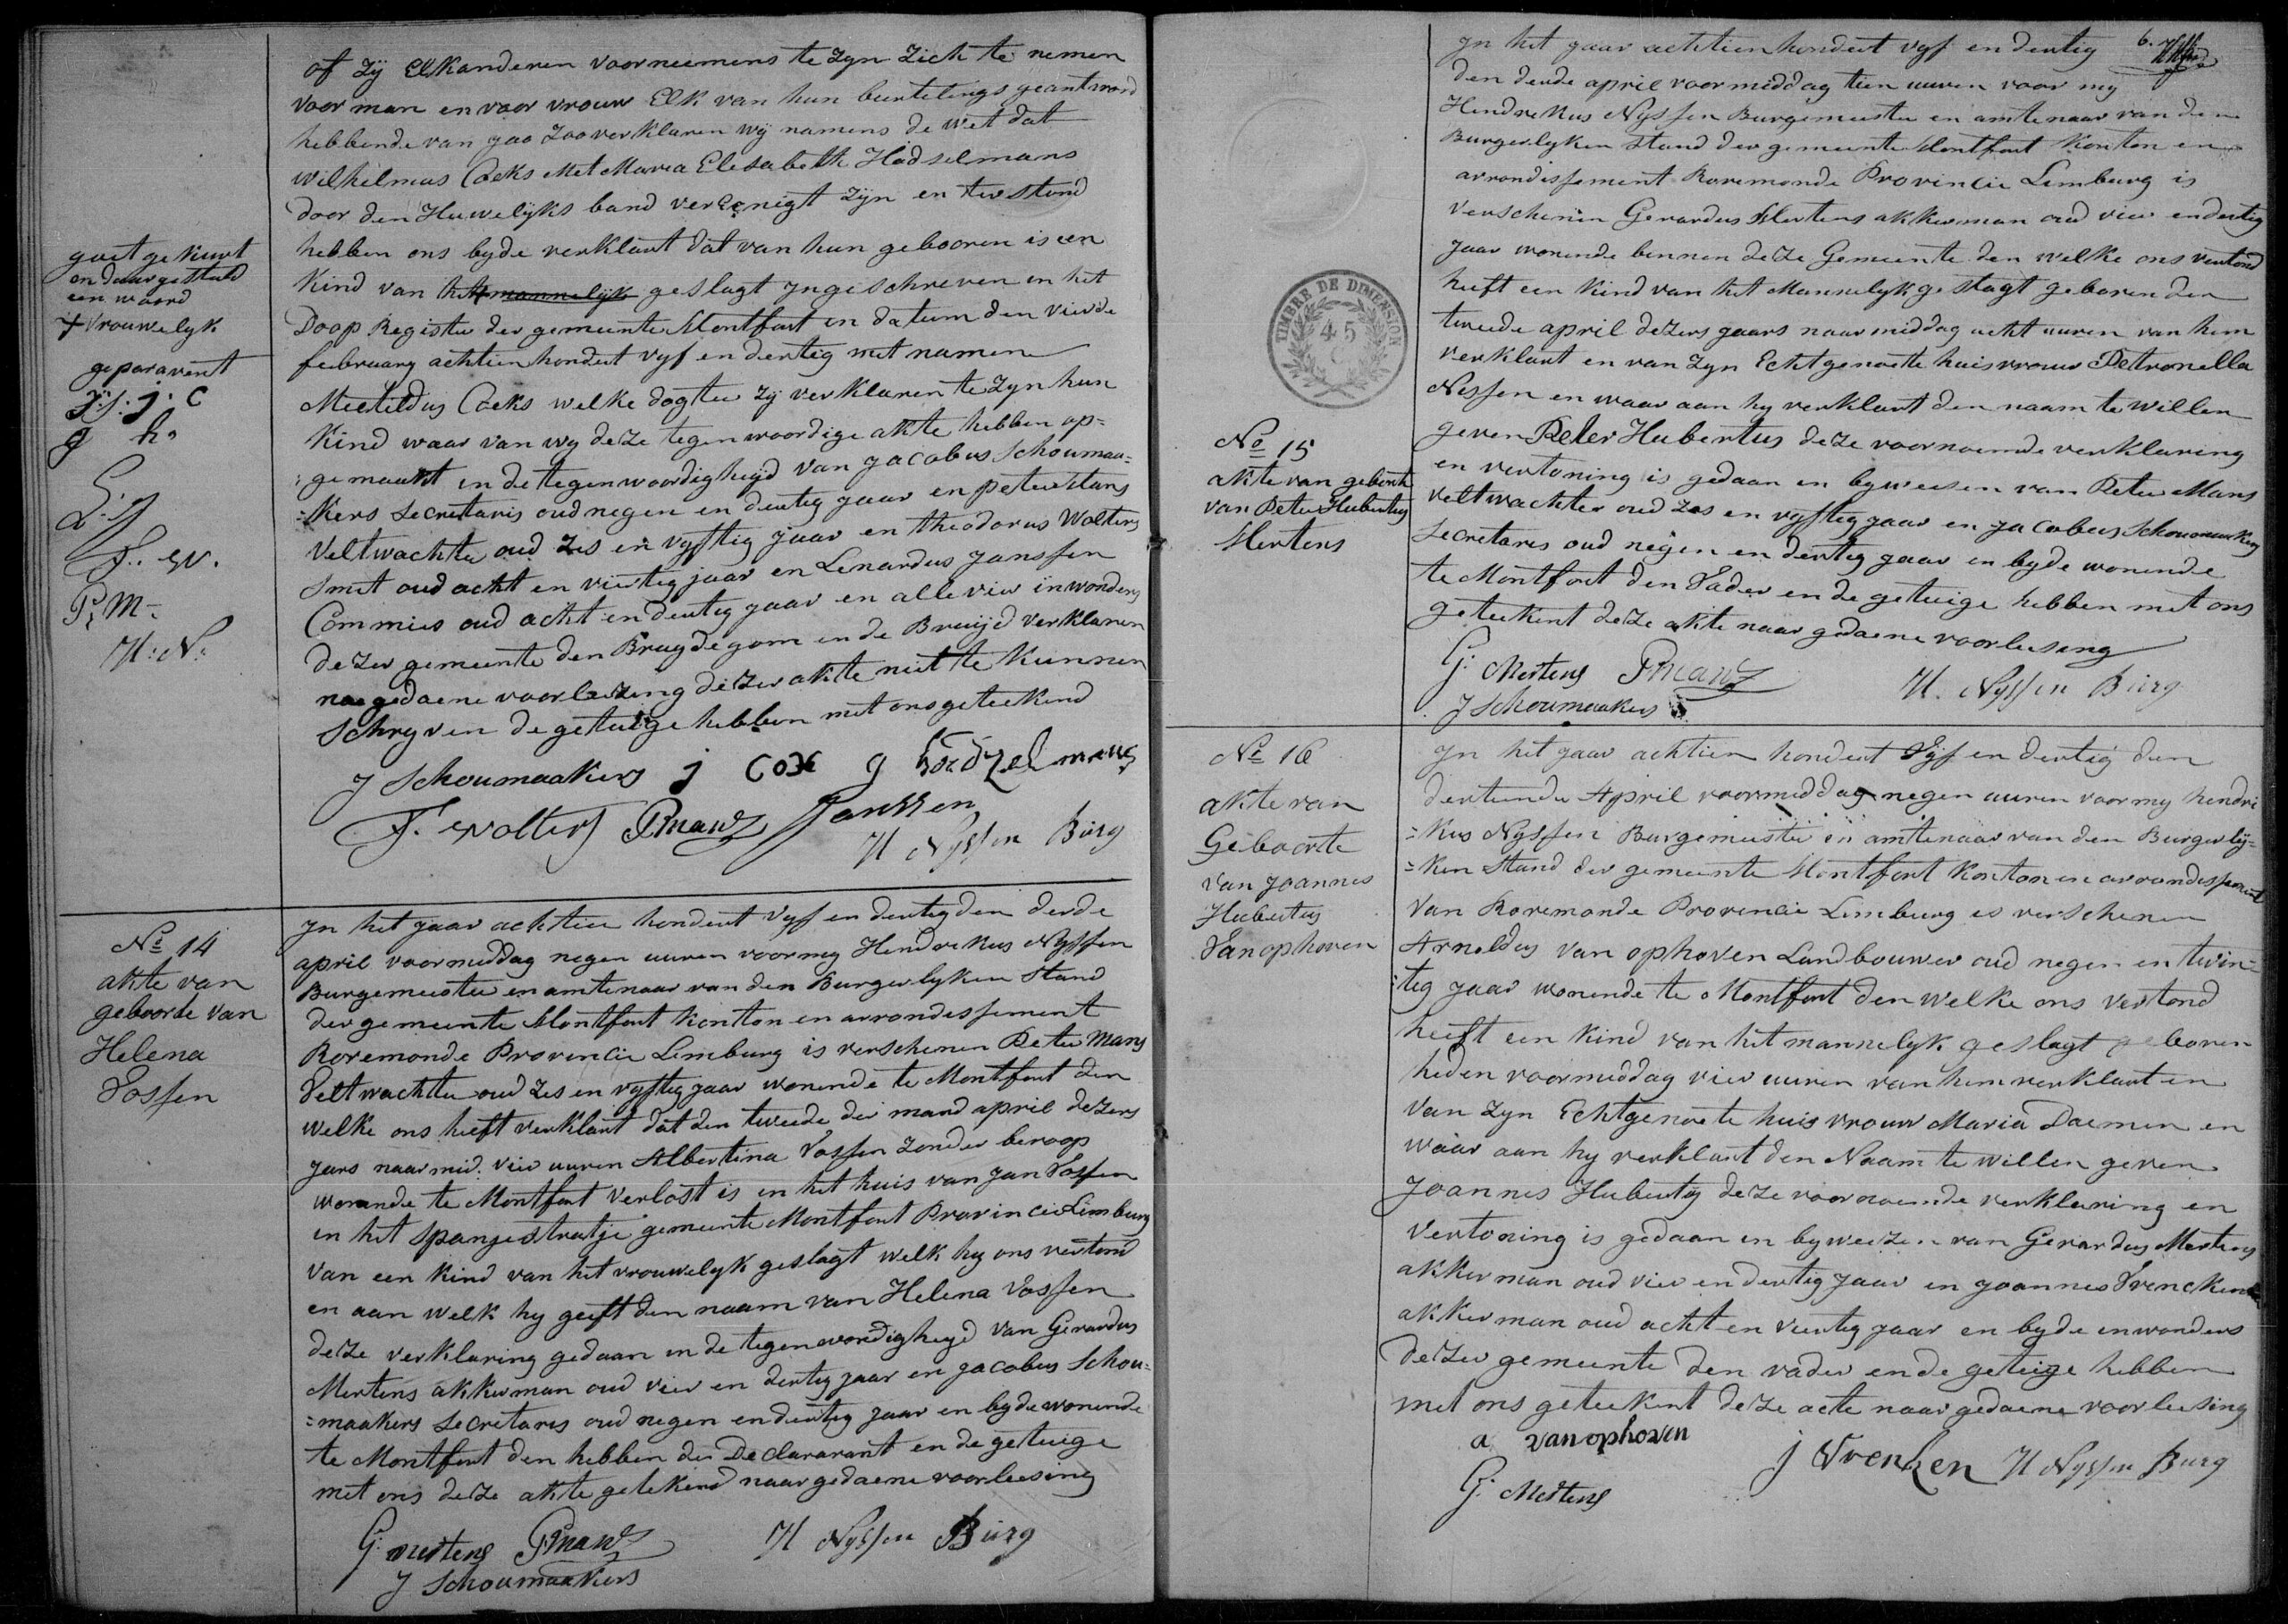 of zÿ Elkanderen voorneemens te zyn zich te nemen
voor man en voor vrouw Elk van hun beurtelings geantword
hebbende van jaa zoo verklaren wÿ namens de wet dat
wilhilmus Coeks Met Maria Elisabeth Hodselmans
door den Huwelyks band verEenigt Zÿn en terstond
hebben ons byde verklart dat van hun gebooren is een
kind van het mannelijk geslagt Ingeschreven in het
Doop Register der gemeente Montfort in datum den vierde
februarÿ achtien hondert vyf en dertig met namen
Mechtildus Coeks welke dogter zÿ verklaren te zyn hun
kind waar van wy deze tegenwoordige akte hebben op=
:gemaakt in de tegenwoordigheyd van jacobus Schoumaa=
=kers Secretaris oud negen en dertig jaar en peter Mans
Veltwachter oud zes en vyftig jaar en theodorus Wolters
Smit oud acht en viertig jaar en Lenardus Janssen
Commies oud acht en dertig jaar en alle vier inwonders
dezer gemeente den Bruydegom en de Bruijd verklaren
na gedaene voorleezing dezer akte niet te kunnen
Schryven de getuige hebben met ons geteekend
J Schoumaakers j Cox g hodzelmans
T. Wolters PManz Janssen
H Nyssen Burg
goet gekeurt
en daargesteld
een woord
+ vrouwelyk
geparavent
J:S: j: C
g h.
L. J
T. W.
P: M-
H: N:
No 14
akte van
geboorte van
Helena
Vossen
In het jaar achtien hondert Vyf en dertig den derde
april voormiddag negen uuren voor my Hendrikus Nyssen
Burgemeester en amtenaar van den Burgerlyken Stand
der gemeente Montfort konton en arrondissement
Roremonde Provincie Limburg is verschenen Peter Mans
Veltwachter oud zes en vyftig jaar wonende te Montfort den
welke ons heeft verklart dat den tweede der mand april dezers
jars naar mid. vier uuren Albertina Vossen zonder beroop
wonende te Montfort verlost is in het huis van Jan Vossen
in het Spanjestratje gemeente Montfort Provincie Limburg
van een kind van het vrouwelyk geslagt welk hy ons vertond
en aan welk hy geeft den naam van Helena Vossen
deze verklaring gedaan in de tegenwordigheyd van Gerardus
Mertens akkerman oud vier en dertig jaar en jacobus Schou=
=maakers Secretaris oud negen en dertig jaar en byde wonende
te Montfort den hebben der Declararant en de getuige
met ons deze akte getekend naar gedaene voorleesing
G: Mertens PManz H Nyssen Burg
J Schoumaakers
6.
In het jaar achtien hondert vyf en dertig
den derde april voormiddag tien uuren voor my
Hendrekus Nyssen Burgemeester en amtenaar van den
Burgerlyken Stand der gemeente Montfort Konton en
arrondissement Roremonde Provincie Limburg is
verschenen Gerardus Mertens akkerman oud vier en dertig
jaar wonende binnen deze Gemeente den welke ons vertond
heeft een kind van het Mannelyk geslagt geboren den
tweede april dezers jaars naar middag acht uuren van hem
verklart en van zyn Echtgenoote huisvrouw Petronella
Nissen en waar aan hy verklart den naam te willen
geven Peter Hubertus deze voornoemde verklaring
en vertoning is gedaan en byweesen van Peter Mans
veltwachter oud zes en vyftig jaar en jacobus Schoumaakers
Secretaris oud negen en dertig jaar en byde wonende
te Montfort den Vader en de getuige hebben met ons
geteekent deze akte naar gedaene voorleesing
G: Mertens PManz H. Nyssen Burg
J Schoumaakers
TIMBRE DE DIMENSION
45
No 15
akte van geborte
van Peter Hubertus
Mertens
No 16
akte van
Geboorte
van Joannes
Hubertus
Van ophoven
In het jaar achtien hondert Vyf en dertig den
dertiende April voormiddag negen uuren voor my hendri
=kus Nyssen Burgemeester en amtenaar van den Burgerlÿ=
=ken Stand der gemeente Montfort Konton en arrondissement
van Roremonde Provincie Limburg is verschenen
Arnoldus van ophoven Landbouwer oud negen en twin=
:tig jaar wonende te Montfort den welke ons vertond
heeft een kind van het mannelyk geslagt geboren
heden voormiddag vier uuren van hem verklart en
van zyn Echtgenoote huis vrouw Maria Daemen en
waar aan hy verklart den Naam te willen geven
Joannes Hubertus deze voornoemde verklaring en
vertoning is gedaan en byweezen van Gerardus Mertens
akkerman oud vier en dertig jaar en joannes Vrencken
akkerman oud acht en veertig jaar en byde inwonders
dezer gemeente den vader en de getuige hebben
met ons geteekent deze acte naar gedaene voorleesing
a van ophoven j Vrenken H Nyssen Burg
G: Mertens